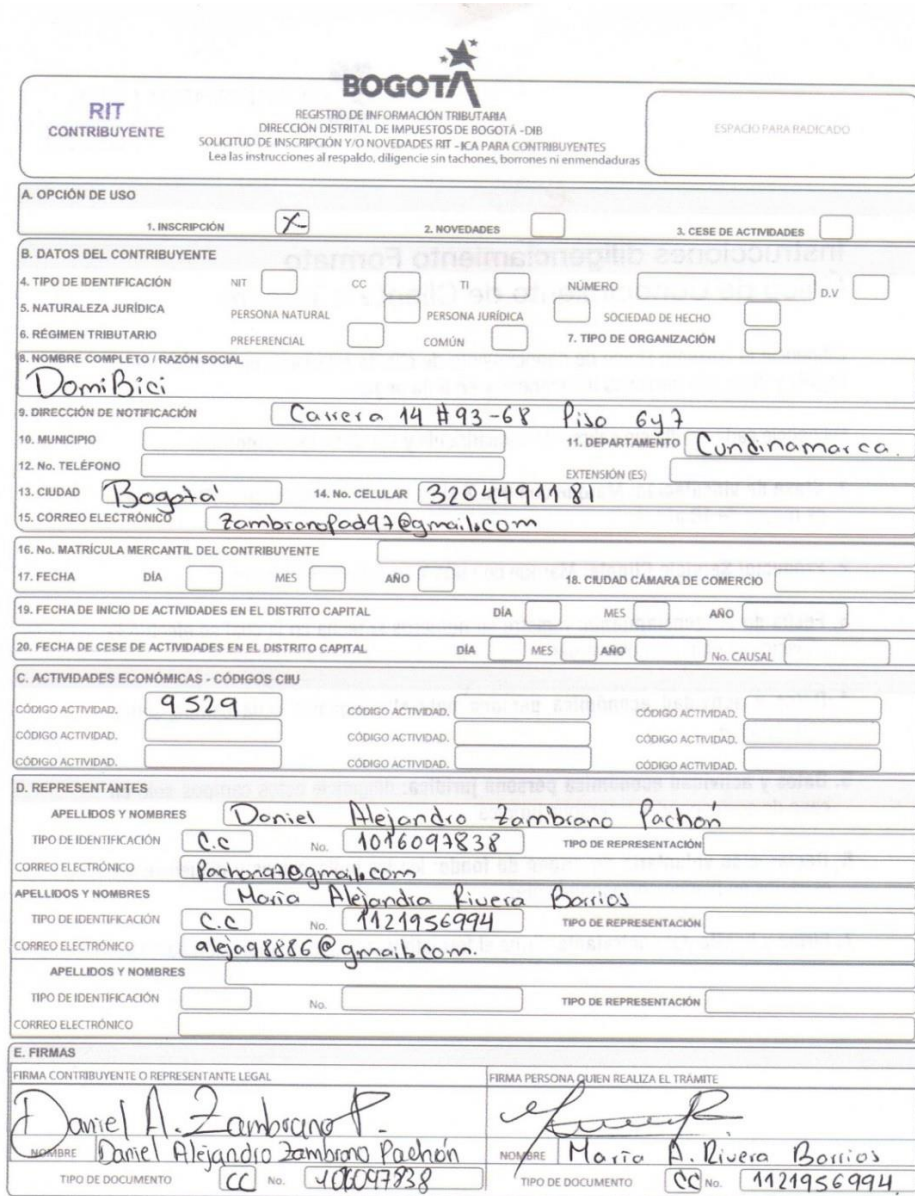 BOGOTÁ
RIT
CONTRIBUYENTE
REGISTRO DE INFORMACIÓN TRIBUTARIA
DIRECCIÓN DISTRITAL DE IMPUESTOS DE BOGOTÁ -DIB
SOLICITUD DE INSCRIPCIÓN Y/O NOVEDADES RIT -ICA PARA CONTRIBUYENTES
Lea las instrucciones al respaldo, diligencie sin tachones, borrones ni enmendaduras
ESPACIO PARA RADICADO
A. OPCIÓN DE USO
1. INSCRIPCIÓN X 2. NOVEDADES 3. CESE DE ACTIVIDADES
B. DATOS DEL CONTRIBUYENTE
4. TIPO DE IDENTIFICACIÓN NIT CC TI NÚMERO D.V
5. NATURALEZA JURÍDICA PERSONA NATURAL PERSONA JURÍDICA SOCIEDAD DE HECHO
6. RÉGIMEN TRIBUTARIO PREFERENCIAL COMÚN 7. TIPO DE ORGANIZACIÓN
8. NOMBRE COMPLETO / RAZÓN SOCIAL
DomiBici
9. DIRECCIÓN DE NOTIFICACIÓN Carrera 14 #93-68 Piso 6y7
10. MUNICIPIO 11. DEPARTAMENTO Cundinamarca.
12. No. TELÉFONO EXTENSIÓN (ES)
13. CIUDAD Bogotá 14. No. CELULAR 3204491181
15. CORREO ELECTRÓNICO Zambranopad97@gmail.com
16. No. MATRÍCULA MERCANTIL DEL CONTRIBUYENTE
17. FECHA DÍA MES AÑO 18. CIUDAD CÁMARA DE COMERCIO
19. FECHA DE INICIO DE ACTIVIDADES EN EL DISTRITO CAPITAL DÍA MES AÑO
20. FECHA DE CESE DE ACTIVIDADES EN EL DISTRITO CAPITAL DÍA MES AÑO No. CAUSAL
C. ACTIVIDADES ECONÓMICAS - CÓDIGOS CIIU
CÓDIGO ACTIVIDAD. 9529 CÓDIGO ACTIVIDAD. CÓDIGO ACTIVIDAD.
CÓDIGO ACTIVIDAD. CÓDIGO ACTIVIDAD. CÓDIGO ACTIVIDAD.
CÓDIGO ACTIVIDAD. CÓDIGO ACTIVIDAD. CÓDIGO ACTIVIDAD.
D. REPRESENTANTES
APELLIDOS Y NOMBRES Daniel Alejandro Zambrano Pachón
TIPO DE IDENTIFICACIÓN C.c No. 1016097838 TIPO DE REPRESENTACIÓN
CORREO ELECTRÓNICO Pachona7@gmail.com
APELLIDOS Y NOMBRES Maria Alejandra Rivera Borrios
TIPO DE IDENTIFICACIÓN C.C No. 1121956994 TIPO DE REPRESENTACIÓN
CORREO ELECTRÓNICO aleja98886@gmail.com.
APELLIDOS Y NOMBRES
TIPO DE IDENTIFICACIÓN No. TIPO DE REPRESENTACIÓN
CORREO ELECTRÓNICO
E. FIRMAS
FIRMA CONTRIBUYENTE O REPRESENTANTE LEGAL FIRMA PERSONA QUIEN REALIZA EL TRÁMITE
Daniel A. Zambrano P.
NOMBRE Daniel Alejandro Zambrano Pachón NOMBRE Maria A. Rivera Borrios
TIPO DE DOCUMENTO CC No. 106097838 TIPO DE DOCUMENTO CC No. 1121956994